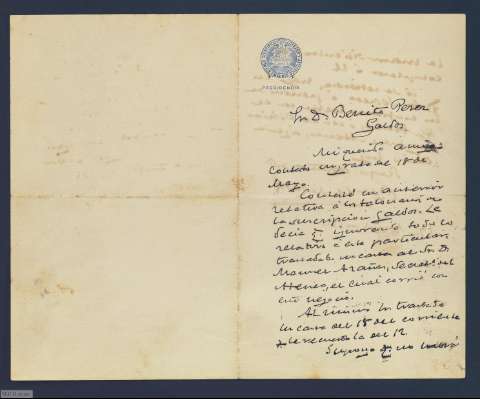 PRESIDENCIA
Sr. D. Benito Perez
Galdos
Mi querido amigo
Contesto su grata del 18 de
Mayo.
Contesté su anterior
relativa á los talonarios de
la suscripcion Galdos. Le
decia q. ignorando todo lo
relativo á este particular,
trasladaba su carta al Sr. D.
Manuel Azaña, Secret del
Ateneo, el cual corrió con
este negocio.
Al mismo he traslado
su carta del 18 del corriente
del 12
Supongo q. no habrá